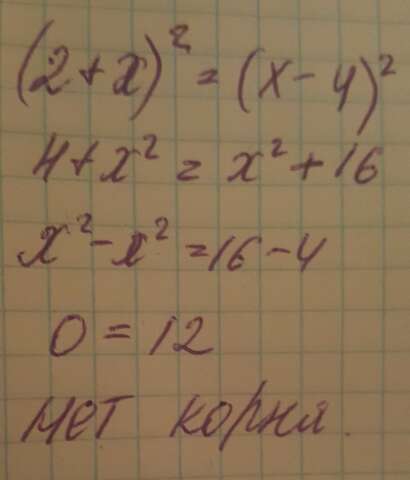 (2+x)² = (x-4)²
4+x² = x²+16
x²-x²=16-4
0 = 12
нет корня.